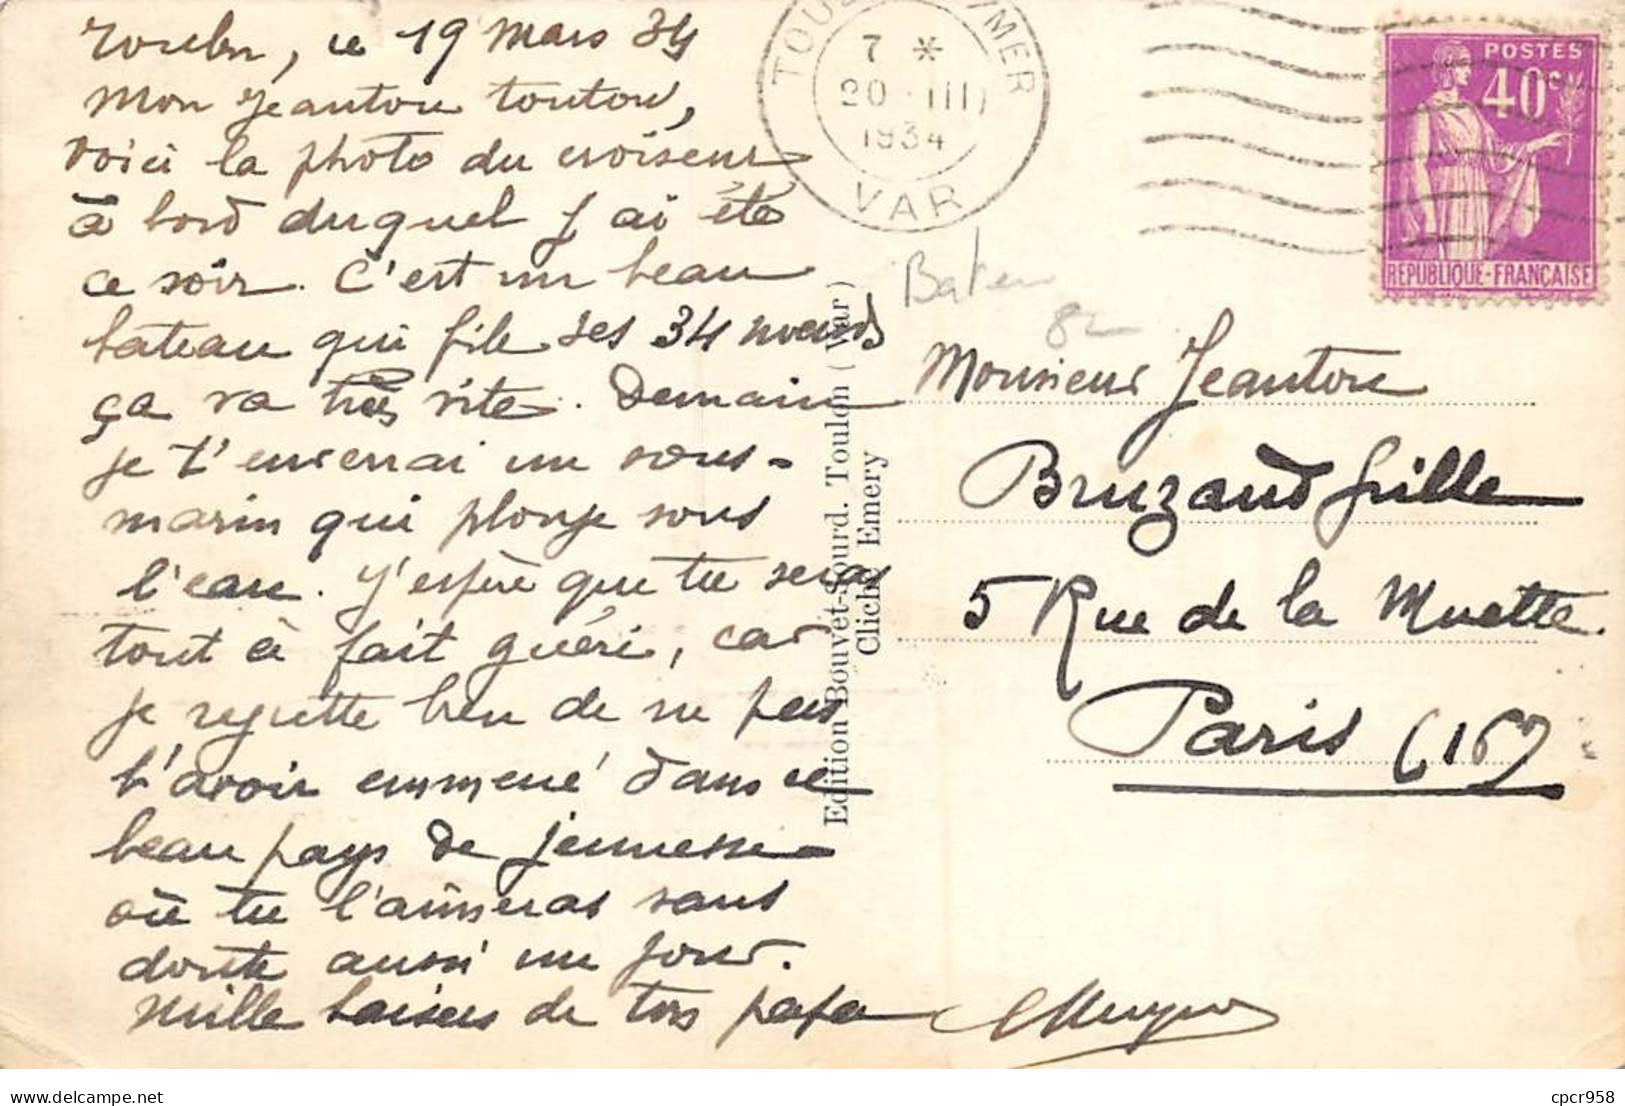 Toulon, ce 19 mars 34
Mon Jeantou toutou,
voici la photo du croiseur
à bord duquel j'ai été
ce soir. C'est un beau
bateau qui file ses 34 noeuds
ça va très vite. Demain
je t'enverrai un sous-
marin qui plonge sous
l'eau. J'espère que tu seras
tout à fait guéri, car
je regrette bien de ne pas
t'avoir emmené dans ce
beau pays de jeunesse
où tu l'aimeras sans
doute aussi un jour.
Mille baisers de ton papa
TOULON MER
7 *
20 III
1934
VAR
POSTES
40c
REPUBLIQUE-FRANÇAISE
Bateau
82
Monsieur Jeantou
Bruzaud Grille
5 Rue de la Muette.
Paris (16)
Edition Bouvet-Sourd. Toulon (Var)
Cliché Emery
cpcr958